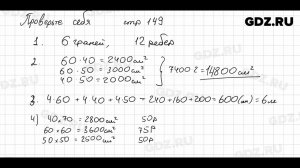 GDZ.RU
Проверьте себя стр 149
1. 6 граней, 12 ребер
2. 60·40=2400см²
60·50=3000см²
40·50=2000см²
7400·2=14800см²
3. 4·60+4·40+4·50=240+160+200=600(см)=6м
4) 40×70=2800см² 50Р
60×60=3600см² 75Р
50×50=2500см² 50Р
GDZ.RU